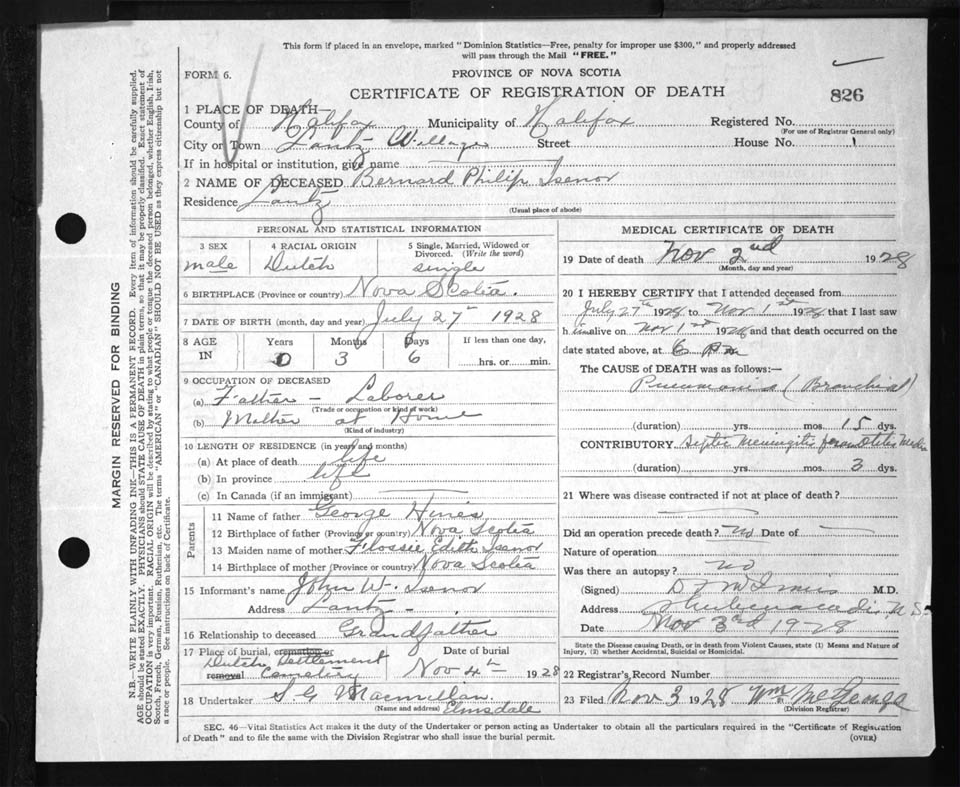 This form if placed in an envelope, marked "Dominion Statistics—Free, penalty for improper use $300," and properly addressed
will pass through the Mail "FREE."
FORM 6.
PROVINCE OF NOVA SCOTIA
CERTIFICATE OF REGISTRATION OF DEATH
826
1 PLACE OF DEATH—
County of Halifax Municipality of Halifax Registered No.
(For use of Registrar General only)
City or Town Lantz Village Street House No. 1
If in hospital or institution, give name
2 NAME OF DECEASED Bernard Philip Isenor
Residence Lantz
(Usual place of abode)
PERSONAL AND STATISTICAL INFORMATION
3 SEX 4 RACIAL ORIGIN 5 Single, Married, Widowed or
Divorced. (Write the word)
male Dutch single
6 BIRTHPLACE (Province or country) Nova Scotia.
7 DATE OF BIRTH (month, day and year) July 27th 1928
8 AGE IN Years Months Days If less than one day,
0 3 6 hrs. or min.
9 OCCUPATION OF DECEASED
(a) Father — Laborer
(Trade or occupation or kind of work)
(b) Mother at Home
(Kind of industry)
10 LENGTH OF RESIDENCE (in years and months)
(a) At place of death life
(b) In province life
(c) In Canada (if an immigrant)
Parents
11 Name of father George Hines
12 Birthplace of father (Province or country) Nova Scotia
13 Maiden name of mother Flossie Edith Isenor
14 Birthplace of mother (Province or country) Nova Scotia
15 Informant's name John W. Isenor
Address Lantz — .
16 Relationship to deceased Grandfather
17 Place of burial, cremation or Date of burial
Dutch Settlement
removal Cemetery Nov 4th 1928
18 Undertaker S G Macmillan.
(Name and address) Elmsdale
MEDICAL CERTIFICATE OF DEATH
19 Date of death Nov 2nd 1928
(Month, day and year)
20 I HEREBY CERTIFY that I attended deceased from
July 27th 1928 to Nov 1st 1928 that I last saw
him alive on Nov 1st 1928 and that death occurred on
the date stated above, at 6 Pm
The CAUSE OF DEATH was as follows:—
Pneumonia (Bronchial)
(duration) yrs. mos. 15 dys.
CONTRIBUTORY. Septic Meningitis from Otitis Media
(duration) yrs. mos. 3 dys.
21 Where was disease contracted if not at place of death?
Did an operation precede death? no Date of
Nature of operation
Was there an autopsy? no
(Signed) M.D.
Address Shubenacadie, N.S.
Date Nov 3rd 1928
State the Disease causing Death, or in death from Violent Causes, state (1) Means and Nature of
Injury, (2) whether Accidental, Suicidal or Homicidal.
22 Registrar's Record Number
23 Filed Nov 3 1928 Wm
(Division Registrar)
SEC. 46—Vital Statistics Act makes it the duty of the Undertaker or person acting as Undertaker to obtain all the particulars required in the "Certificate of Registration
of Death" and to file the same with the Division Registrar who shall issue the burial permit. (OVER)
MARGIN RESERVED FOR BINDING
N.B.—WRITE PLAINLY WITH UNFADING INK—THIS IS A PERMANENT RECORD. Every item of information should be carefully supplied.
AGE should be stated EXACTLY. PHYSICIANS should STATE CAUSE OF DEATH in plain terms, so that it may be properly classified. Exact statement of
OCCUPATION is very important. RACIAL ORIGIN will be described by stating to what people or tongue the deceased person belonged, whether English, Irish,
Scotch, French, German, Russian, Ruthenian, etc. The terms "AMERICAN" or "CANADIAN" SHOULD NOT BE USED as they express citizenship but not
a race or people. See instructions on back of Certificate.